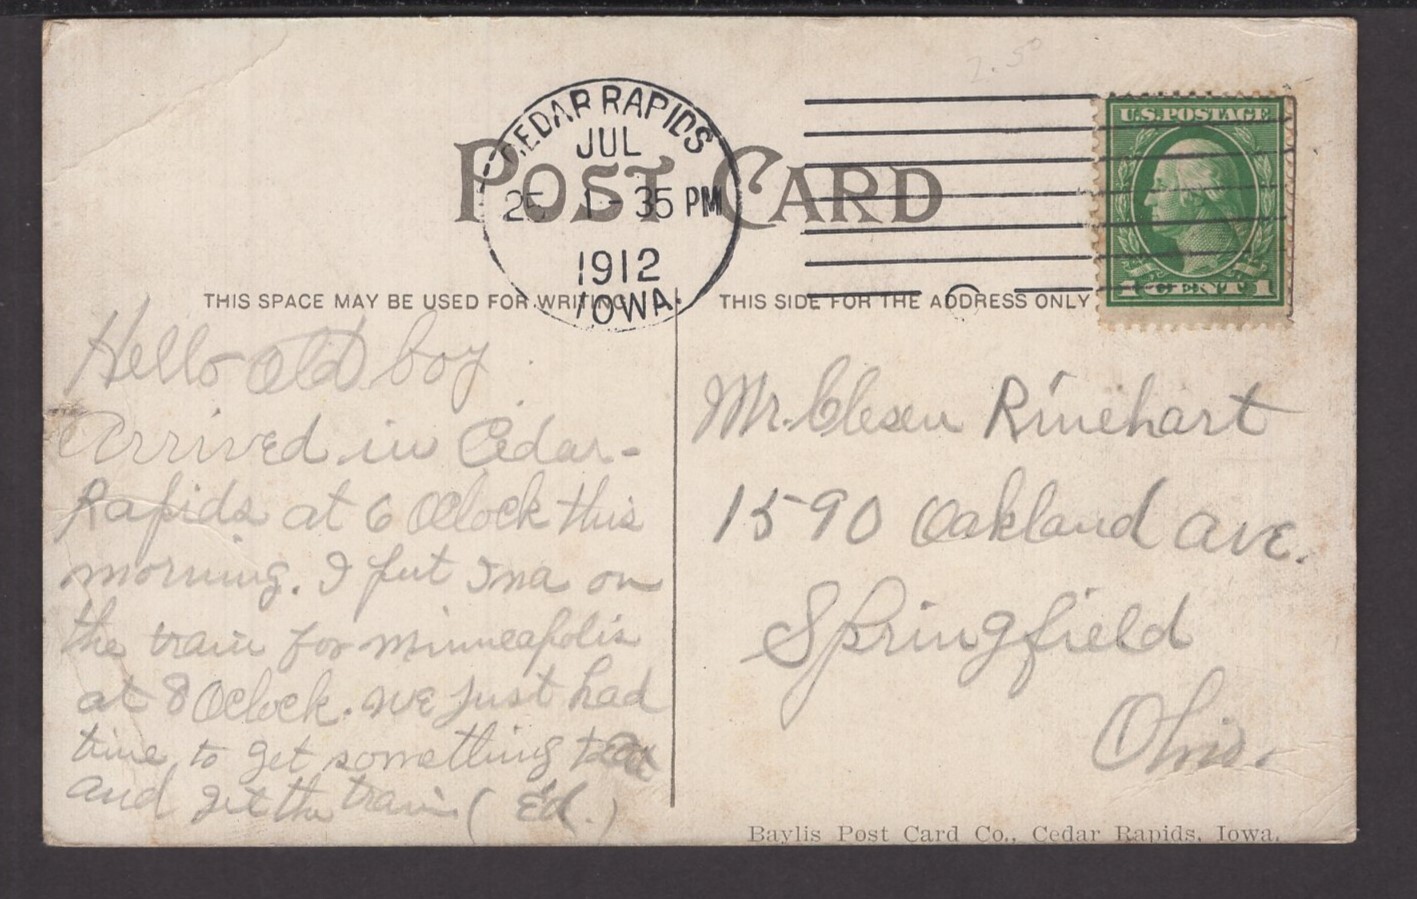 2.50
CEDAR RAPIDS
JUL
25 1-35 PM
1912
IOWA.
POST CARD
U.S. POSTAGE
1 CENT 1
THIS SPACE MAY BE USED FOR WRITING
THIS SIDE FOR THE ADDRESS ONLY
Hello old boy
Arrived in Cedar-
Rapids at 6 Oclock this
morning. I put Ina on
the train for Minneapolis
at 8 Oclock. we just had
time to get something to eat
and get the train (Ed.)
Mr. Clesen Rinehart
1590 Oakland ave.
Springfield
Ohio.
Baylis Post Card Co., Cedar Rapids, Iowa.